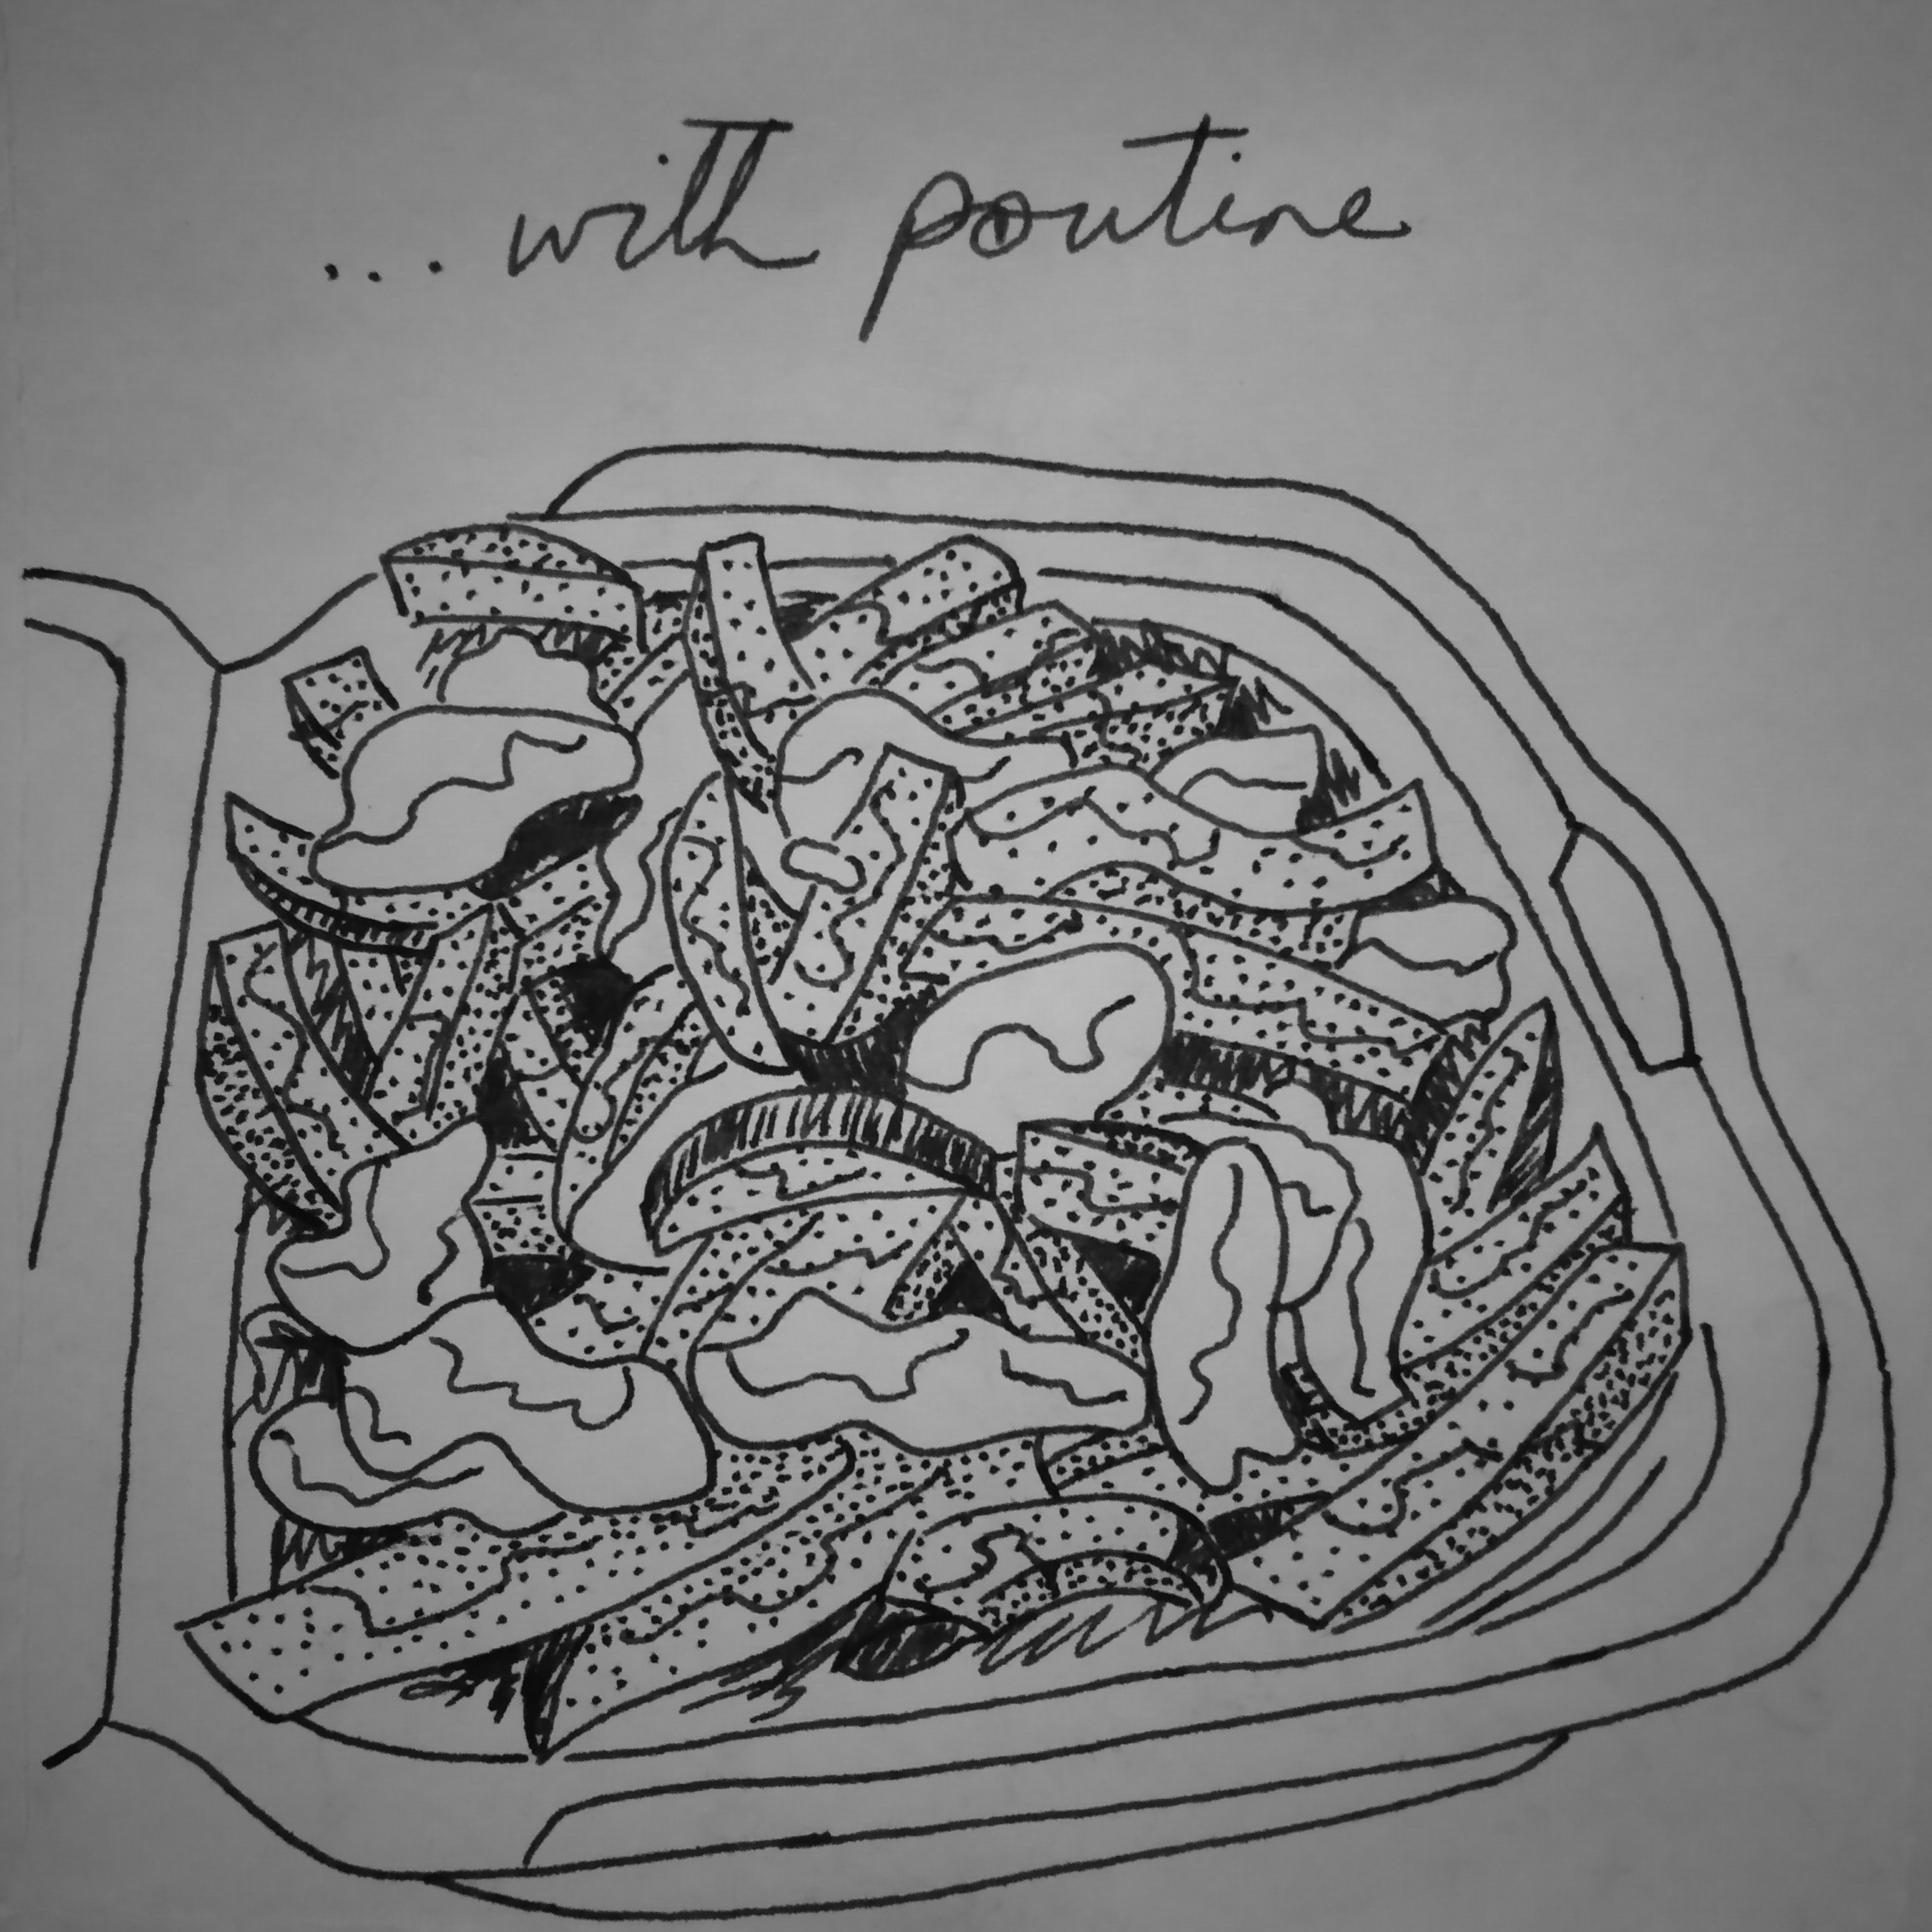 ... with poutine